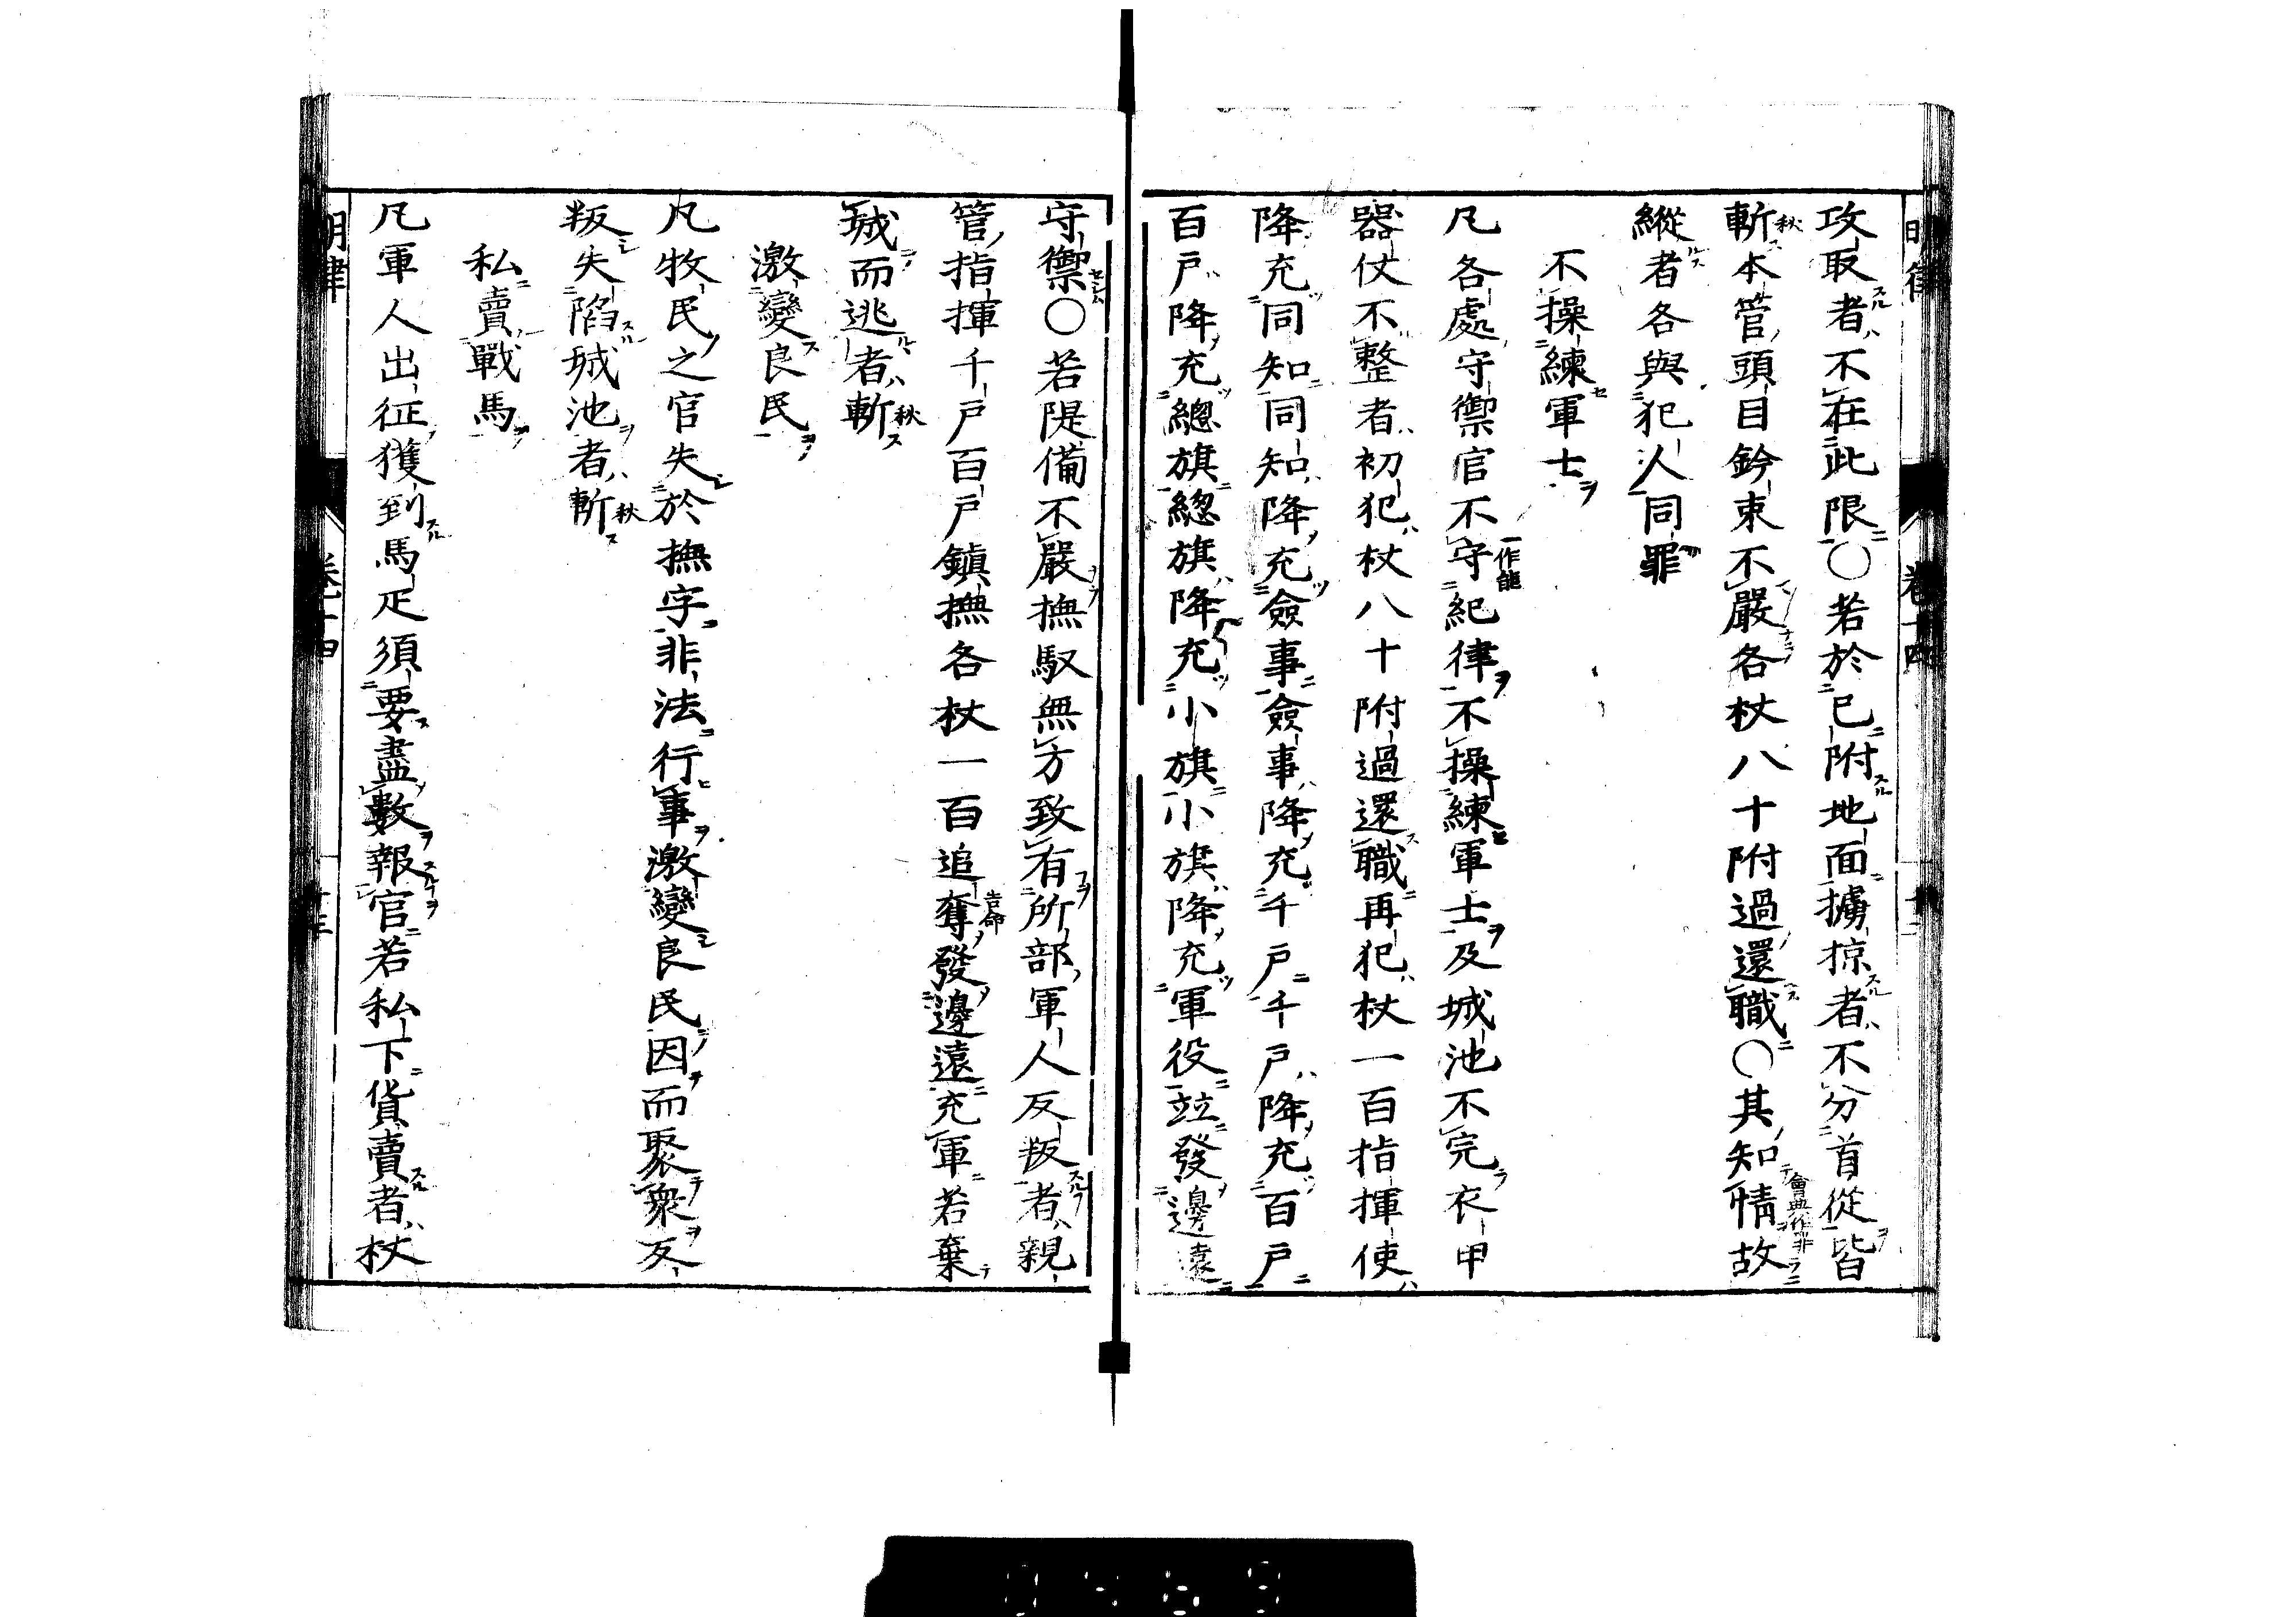 明律 卷十四
攻取者不在此限○若於已附地面擄掠者不分首從皆
斬秋本管頭目鈐束不嚴各杖八十附過還職○其知情故
會典作非
縱者各與犯人同罪
不操練軍士
凡各處守禦官不守紀律不操練軍士及城池不完衣甲
一作能
器仗不整者初犯杖八十附過還職再犯杖一百指揮使
降充同知同知降充僉事僉事降充千戶千戶降充百戶
百戶降充總旗總旗降充小旗小旗降充軍役竝發邊遠
守禦○若隄備不嚴撫馭無方致有所部軍人反叛者親
管指揮千戶百戶鎮撫各杖一百追奪發邊遠充軍若棄
告命
城而逃者斬秋
激變良民
凡牧民之官失於撫字非法行事激變良民因而聚衆反
叛失陷城池者斬秋
私賣戰馬
凡軍人出征獲到馬疋須要盡數報官若私下貨賣者杖
明律 卷十四 十三